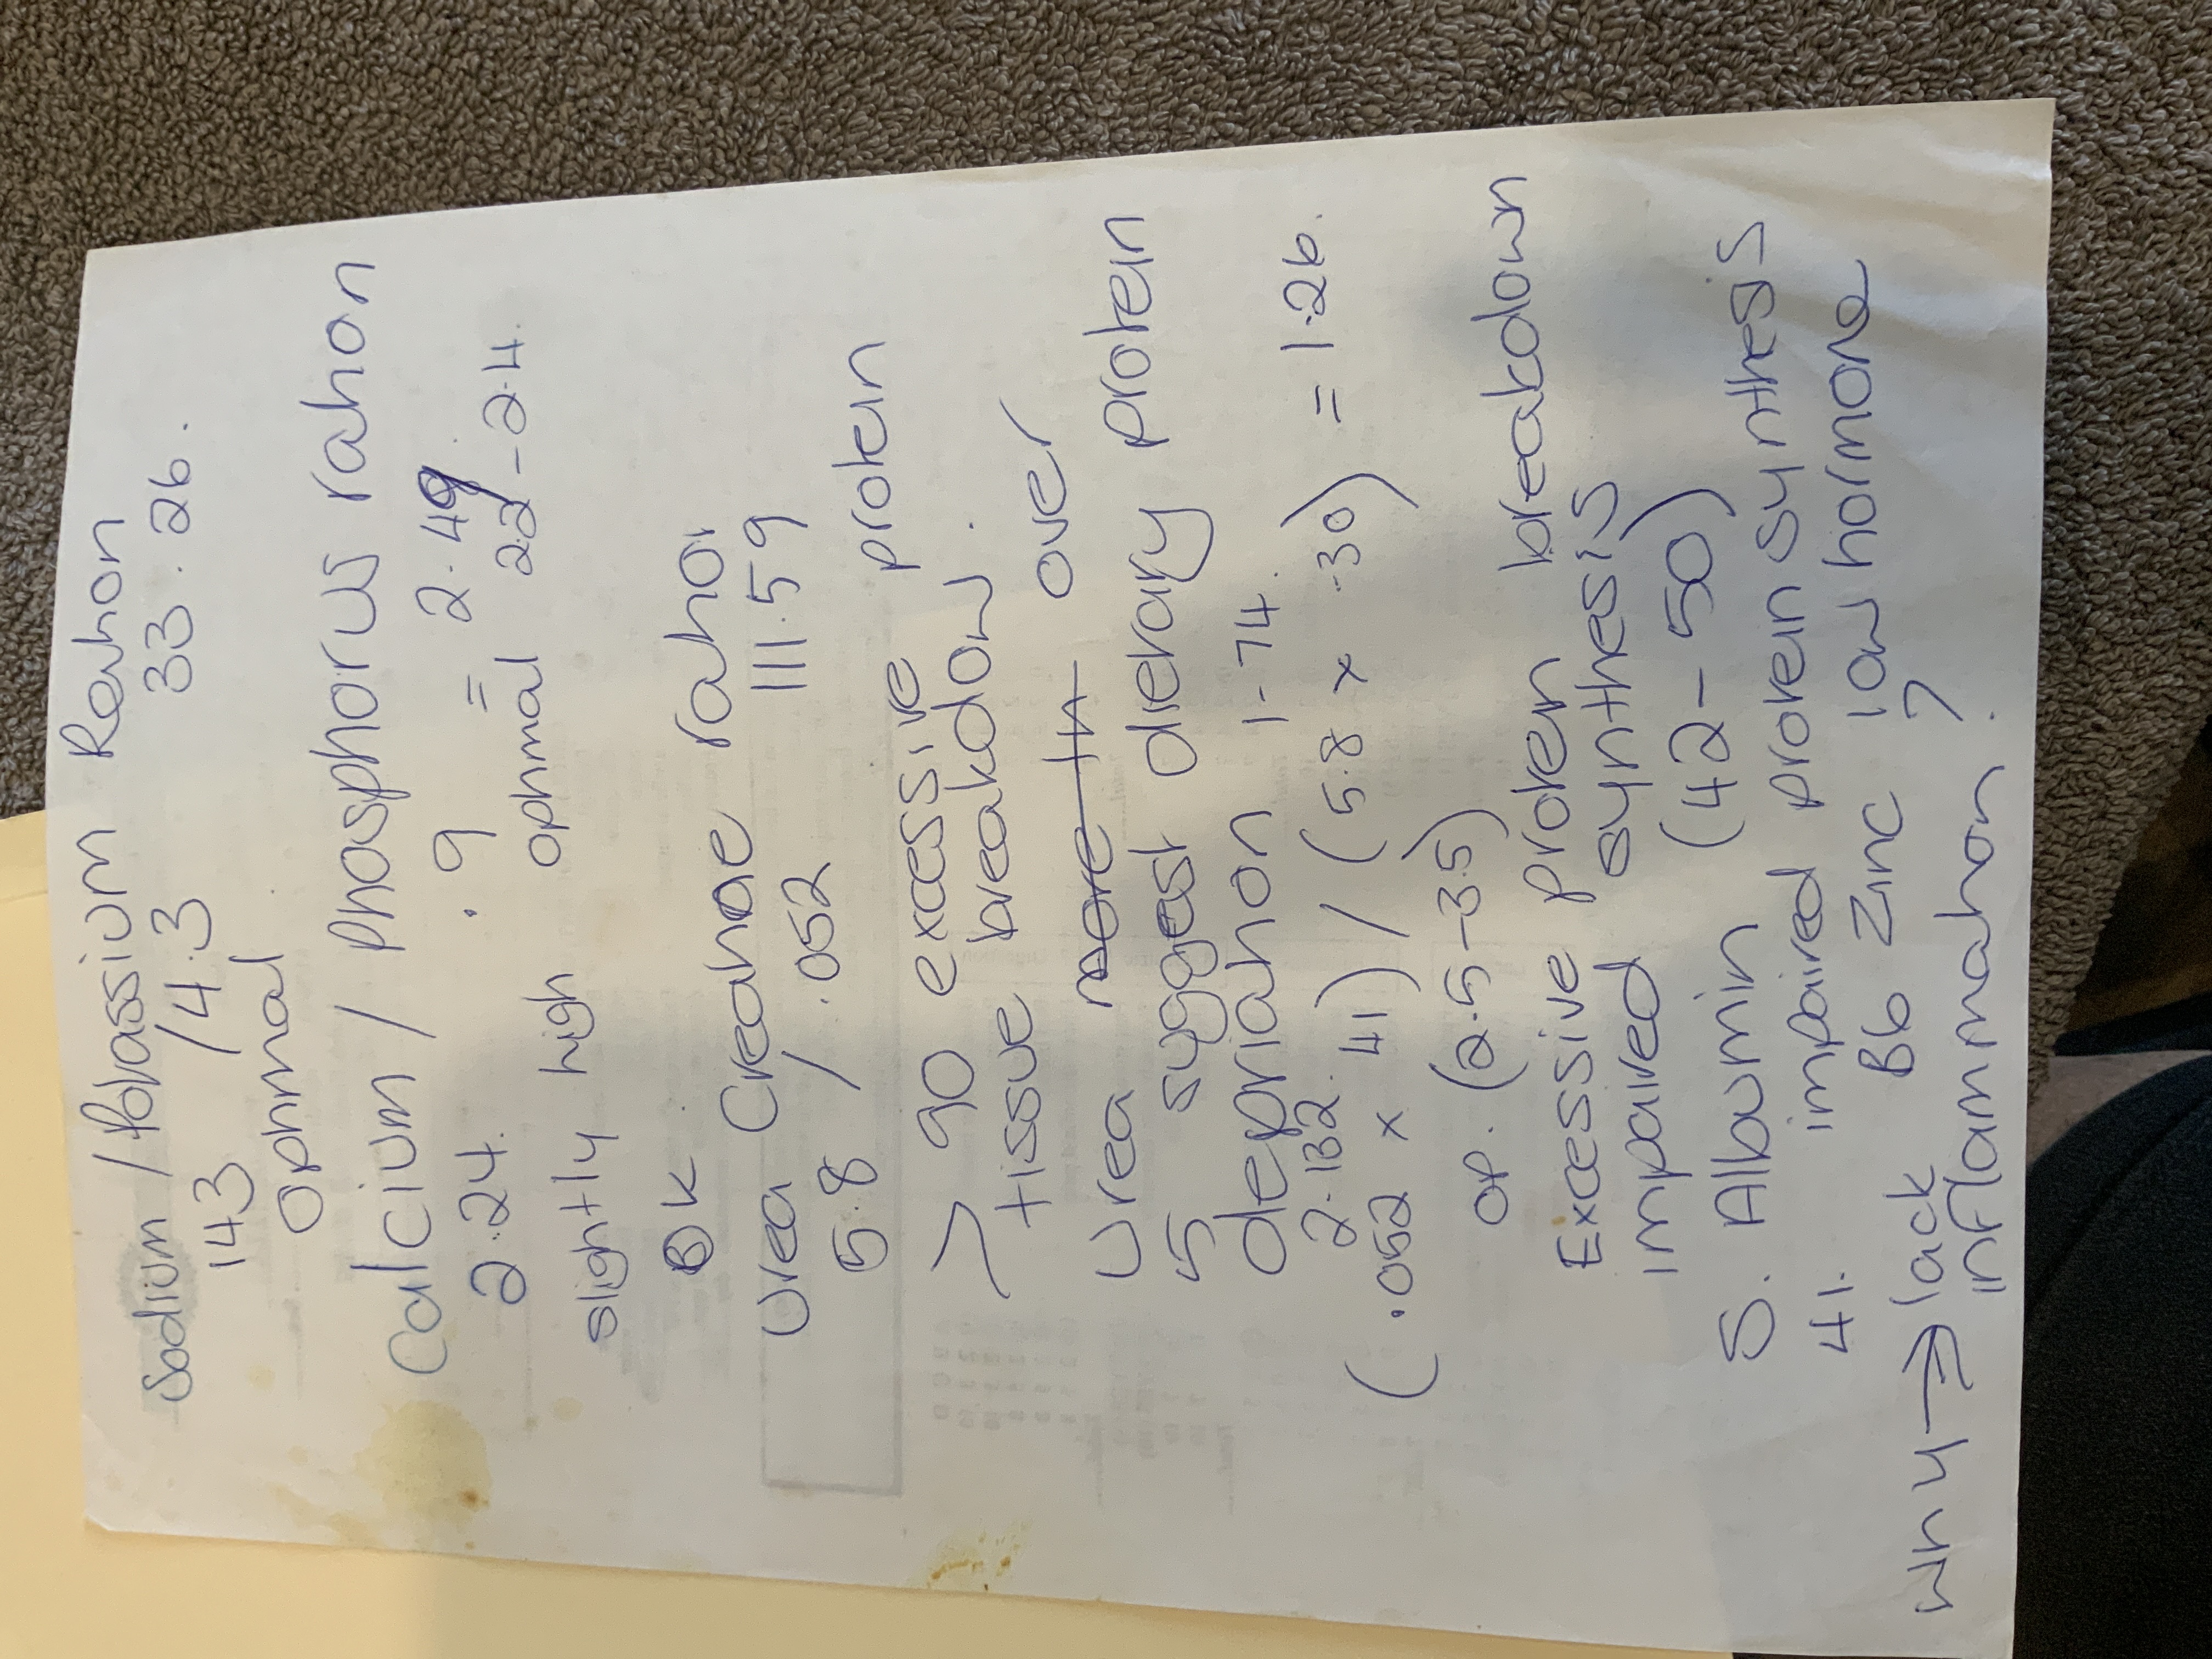 Sodium / Potassium Ration
143 / 4.3 33.26.
Optimal
Calcium / Phosphorus ration
2.24. .9 = 2.49
slightly high optimal 2.2-2.4.
BK
Urea Creatine ratio
5.8 / .052 111.59
> 90 excessive protein
tissue breakdow.
Urea more tn over
5 suggest dierary protein
depriation 1-74.
2.132.
(.052 x 41) / (5.8 x .30) = 1.26.
op. (2.5-3.5)
Excessive protein breakdown
impaired synthesis
S. Albumin (42-50)
41. impaired protein synthesis
why → lack B6 Zinc low hormone
inflammation. ?